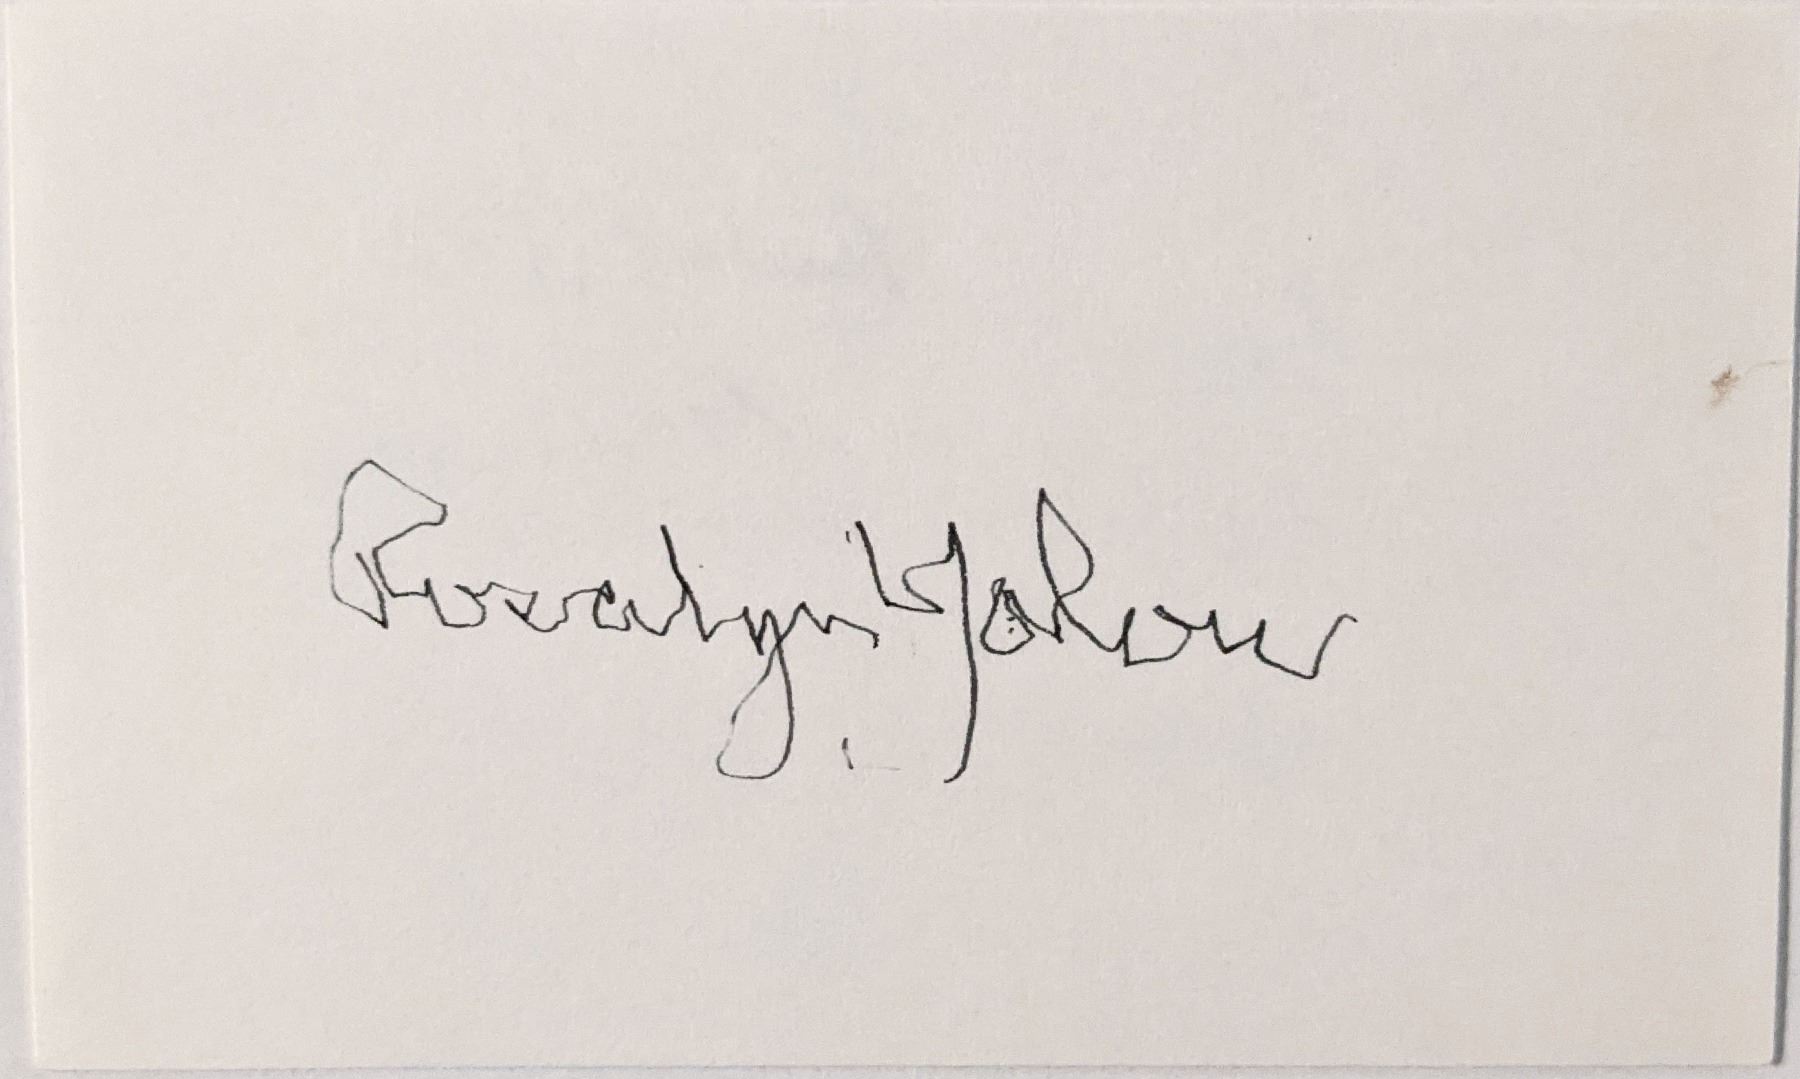 Rosalyn Yalow